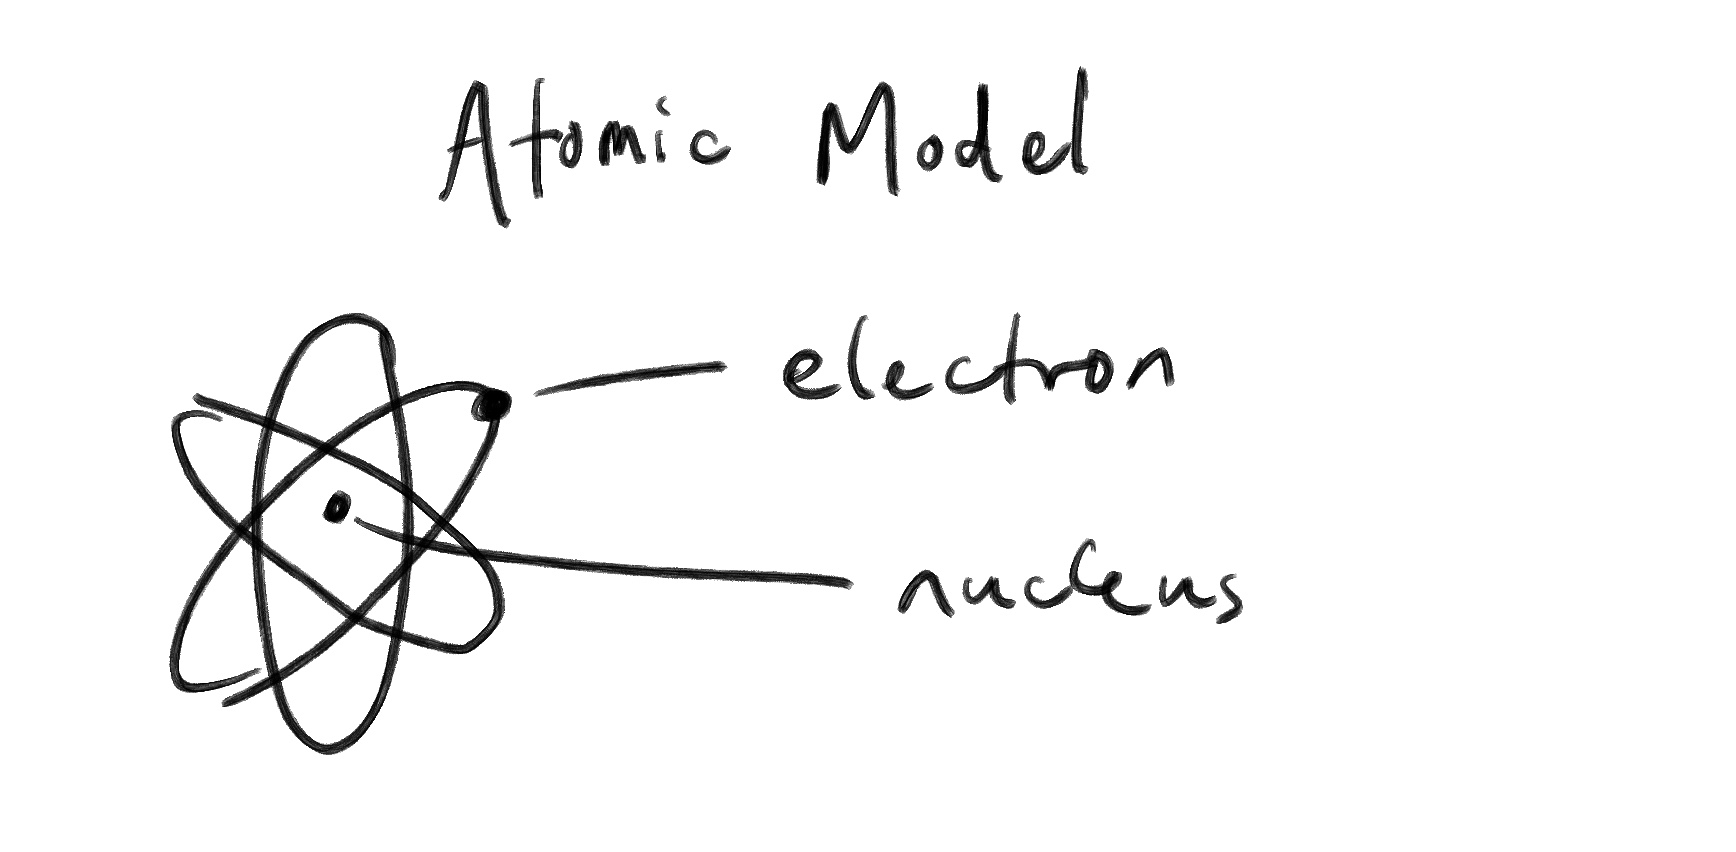 Atomic Model
electron
nucleus